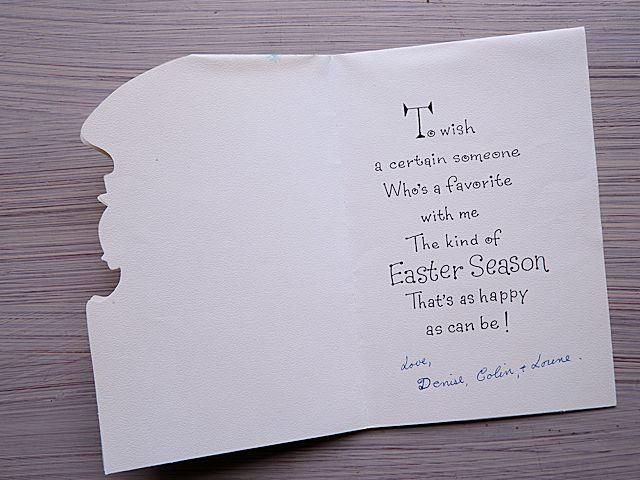 To wish
a certain someone
Who's a favorite
with me
The kind of
Easter Season
That's as happy
as can be!
Love,
Denise, Colin, +